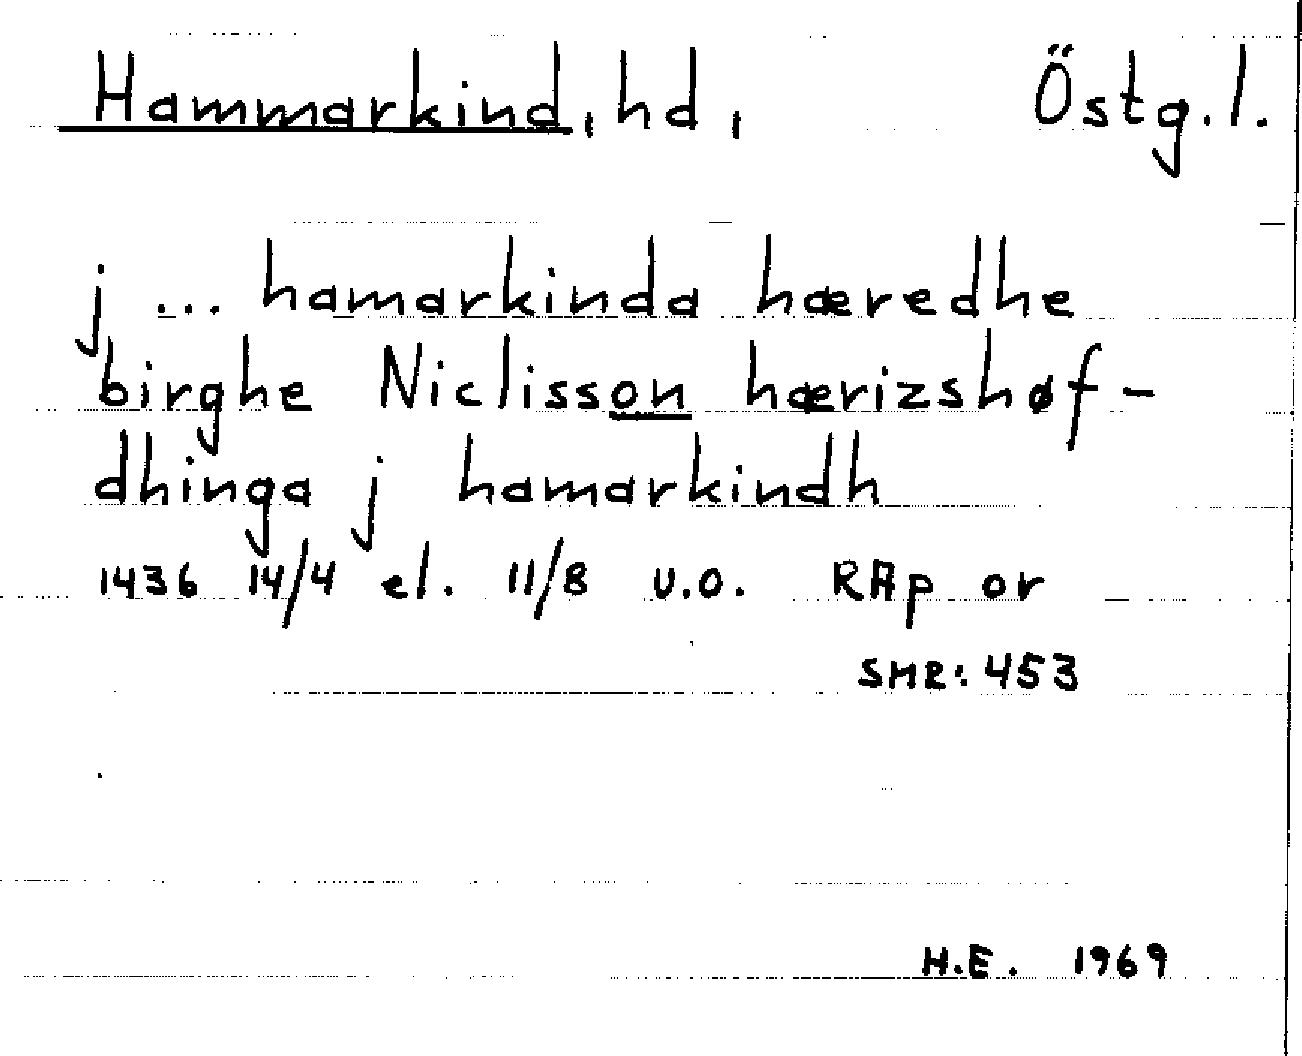 Hammarkind, hd, Östg.l.
j ... hamarkinda hæredhe
birghe Niclisson hærizshøf-
dhinga j hamarkindh
1436 14/4 el. 11/8 u.o. RAp or
SMR: 453
H.E. 1969